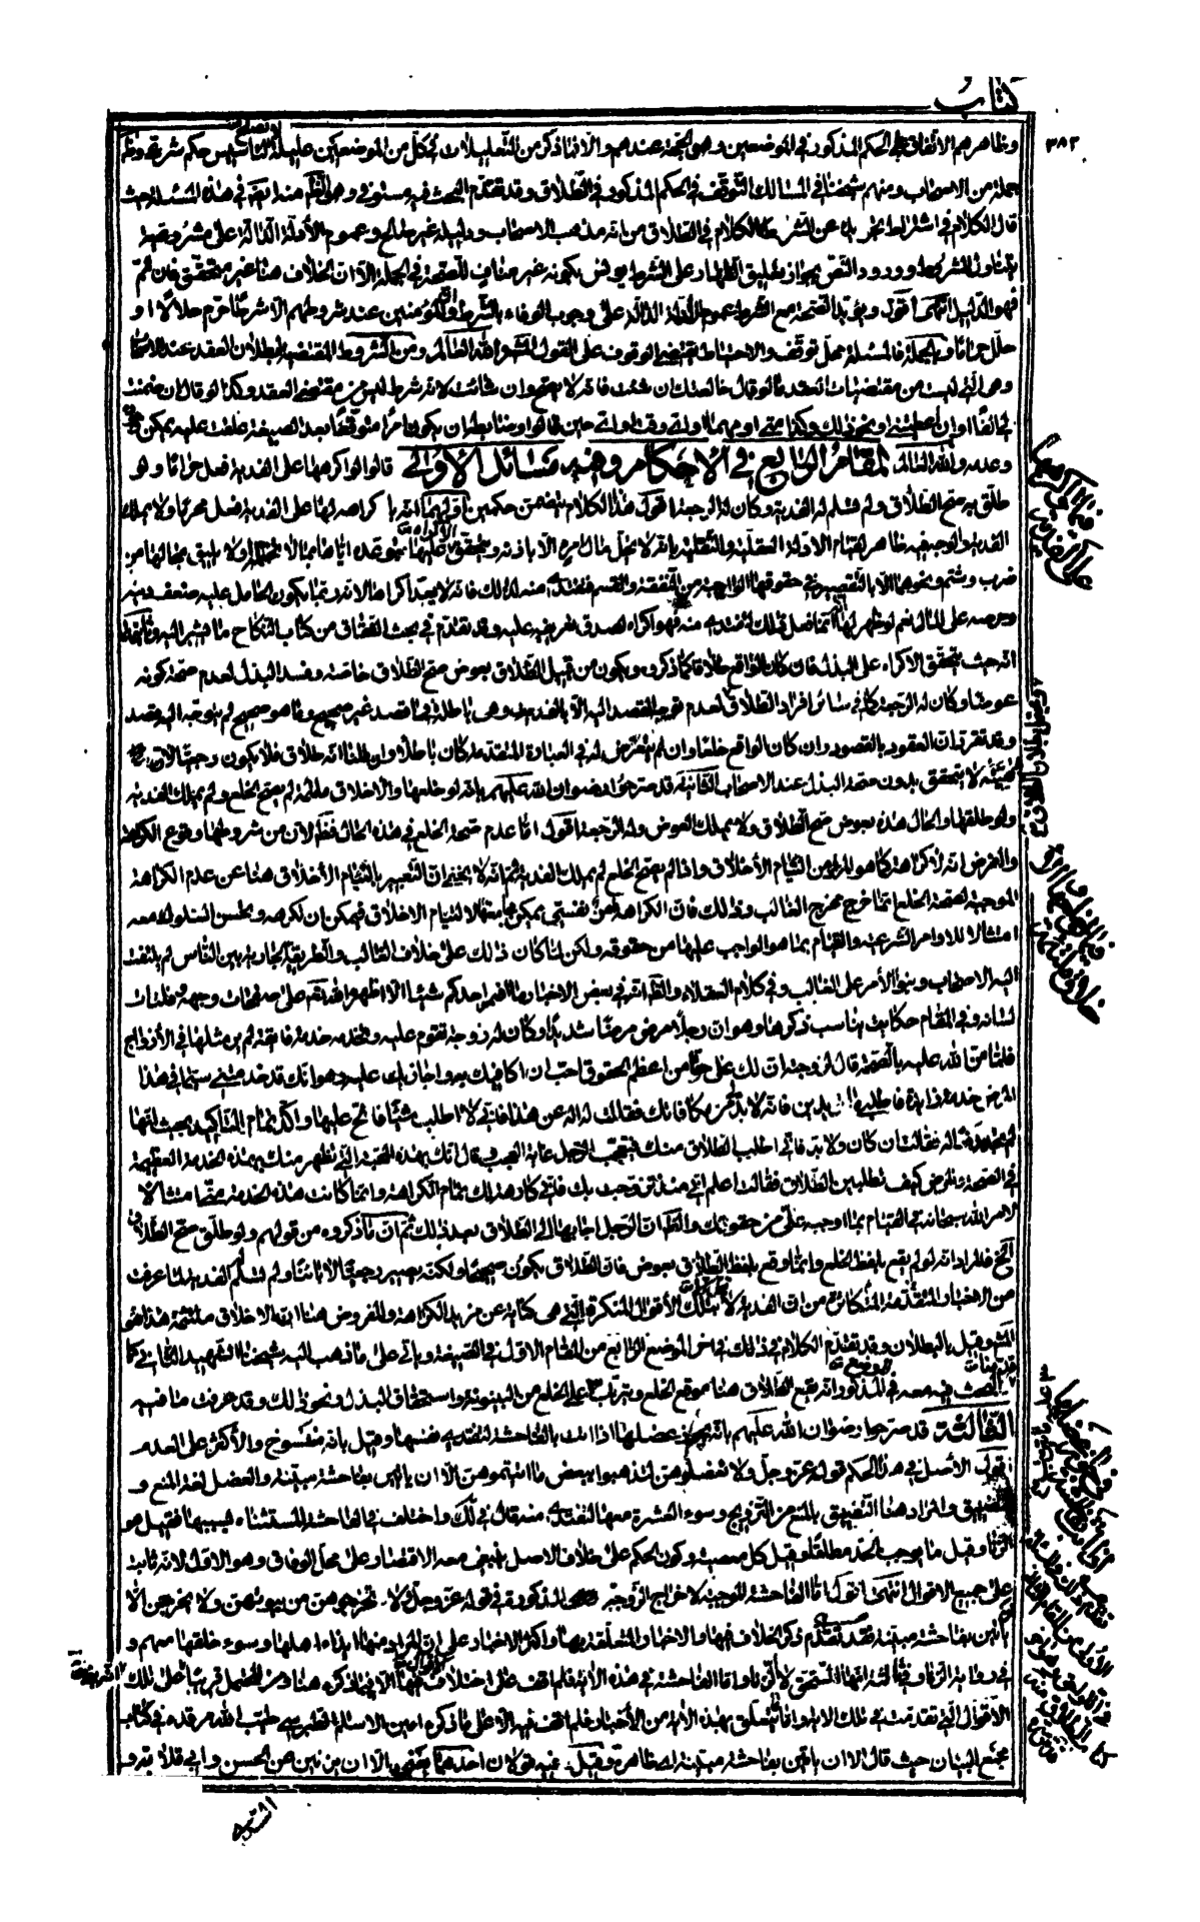 كتاب
٣٨٢
وظاهرهم الاتفاق على الحكم المذكور في الموضعين وهو الحجة عندهم والا فما ذكر من التعليلات في كل من الموضعين عليلة لا تصلح لتأسيس حكم شرعي وظ
جملة من الاصحاب ومنهم شيخنا في المسالك التوقف في الحكم المذكور في الطلاق وقد تقدم البحث فيه مستوفى وهو الظ منه ايضا في هذه المسئلة حيث
قال الكلام في اشتراط تجريده عن الشرط كالكلام في الطلاق من انه مذهب الاصحاب ودليله غير صالح وعموم الأدلة الدالة على مشروعيته
يتناول المشروط وورود النص بجواز تعليق الظهار على الشرط يؤنس بكونه غير مناف للصحة في الجملة الا ان الخلاف هنا غير متحقق فان تم
فهو الدليل انتهى اقول ويؤيد الصحة مع الشرط عموم الأدلة الدالة على وجوب الوفاء بالشرط وان المؤمنين عند شروطهم الا شرطا حرم حلالا او
حلل حراما وبالجملة فالمسئلة محل توقف والاحتياط يقتضي الوقوف على القول المشهور والله العالم ومن الشروط المقتضية لبطلان العقد عند الاصحاب
وهو التي ليست من مقتضيات العقد ما لو قال خالعتك ان شئت فانه لا يصح وان شائت لانه شرط ليس من مقتضى العقد وكذا لو قال ان ضمنت
لي الفا او ان اعطيتني او نحو ذلك وكذا متى او مهما او اي وقت او اي حين قالوا وضابطه ان يكون امرا متوقعا بعد الصيغة علقت عليه يمكن
وعدمه والله العالم المقام الرابع في الاحكام وفيه مسائل الأولى قالوا لو اكرهها على الفدية فعل حراما ولو
طلق به صح الطلاق ولم تسلم له الفدية وكان له الرجعة اقول هذا الكلام يتضمن حكمين اولهما انه باكراهه لها على الفدية فعل محرما ولا يملك
الفدية والوجه فيه ظاهر لقيام الادلة العقلية والنقلية بانه لا يحل مال امرء الا باذنه ويتحقق الاكراه عليها بتوعده اياها بما لا تتحمله ولا يليق بحالها من
ضرب وشتم ونحوهما اما التقصير في حقوقها الواجبة من النفقة والقسم فتفتدي منه لذلك فانه لا يعد اكراها لانه ربما يكون الحامل عليه ضعف دينه
وحرصه على المال نعم لو ظهر لها انه انما فعل ذلك لتفتدي منه فهو اكراه لصدق تعريفه عليه وقد تقدم في بحث الشقاق من كتاب النكاح ما يشير اليه وثانيهما
انه حيث يتحقق الاكراه على البذل فان كان الواقع طلاقا كما ذكر ويكون من قبيل الطلاق بعوض صح الطلاق خاصة وفسد البذل لعدم صحة كونه
عوضا وكان له الرجعة كما في سائر افراد الطلاق لعدم توجه القصد اليه الا بالفدية وهي باطلة فما قصد غير صحيح وما هو صحيح لم يتوجه اليه قصد
وقد تقرر ان العقود بالقصود وان كان الواقع خلعا وان لم يتعرض له في العبارة المتقدمة كان باطلا وان قلنا انه طلاق فلا يكون رجعيا لان
مهيته لا يتحقق بدون صحة البذل عند الاصحاب الثانية قد صرحوا رضوان الله عليهم بانه لو خلعها والاخلاق ملتئمة لم يصح الخلع ولم يملك الفدية
ولو طلقها والحال هذه بعوض صح الطلاق ولم يملك العوض وله الرجعة اقول اما عدم صحة الخلع في هذه الحال فظ لان من شروطها وقوع الكراهة
والفرض انه لا كراهة كما هو المراد من التيام الأخلاق واذا لم يصح الخلع لم يملك الفدية ثم انه لا يخفى ان التعبير بالتيام الأخلاق هنا عن عدم الكراهة
الموجبة لصحة الخلع انما خرج مخرج الغالب وذلك فان الكراهة من نفسها يمكن معها الالتيام الاخلاق فيمكن ان تكرهه وتحسن السلوك معه
امتثالا للاوامر الشرعية والقيام بما هو الواجب عليها من حقوقه ولكن لما كان ذلك على خلاف الغالب والطريقة الجارية بين الناس لم يلتفت
اليه الاصحاب وبنوا الأمر على الغالب وفي كلام العقلاء والظ انه في بعض الاخبار ما اضمر احدكم شيئا الا اظهره الله تعالى على صفحات وجهه وفلتات
لسانه وفي المقام حكاية يناسب ذكرها وهو ان رجلا مرض مرضا شديدا وكان له زوجة تقوم عليه وتخدمه خدمة فائقة لم ير مثلها في الأزواج
فلما من الله عليه بالصحة قال لزوجته ان لك علي حقا من اعظم الحقوق احب ان اكافيك به واجازيك عليه وهو انك قد خدمتيني سيما في هذا
المرض خدمة زائدة فاطلبي ما تريدين فانه لا بد لي من مكافاتك فقالت له اله عن هذا فاني لا اطلب شيئا فالح عليها واكد تمام التأكيد بحيث انها
لم فقالت ان كان ولا بد فاني اطلب الطلاق منك فتعجب الرجل غاية العجب وقال انك بهذه المحبة التي تظهر منك بهذه الخدمة العظيمة
في الصحة والمرض كيف تطلبين الطلاق فقالت اعلم اني منذ تزوجت بك فاني كارهة لك تمام الكراهة وانما كانت هذه الخدمة محضا امتثالا
لامر الله سبحانه في القيام بما اوجبه علي من حقوقك والظ ان الرجل اجابها الى الطلاق بعد ذلك ثم ان ما ذكروه من قولهم ولو طلق صح الطلاق
الخ فالمراد انه لو لم يقع بلفظ الخلع وانما وقع بلفظ الطلاق بعوض فان الطلاق يكون صحيحا ولكنه يصير رجعيا لا بائنا ولم تسلم الفدية لما عرفت
من الاخبار المتقدمة المتكاثرة من ان الفدية لا تحل الا بتلك الأقوال المنكرة التي هي كناية عن مزيد الكراهة والمفروض هنا ان الاخلاق ملتئمة هذا هو
المشهور وقيل بالبطلان وقد تقدم الكلام في ذلك في اخر الموضع الرابع من المقام الاول في الصيغة وياتي على ما ذهب اليه شيخنا الشهيد الثاني كما
قدمنا البحث فيه معه في المذكور انه يقع الطلاق هنا موقع الخلع ويترتب على الخلع من البينونة واستحقاق البذل ونحو ذلك وقد عرفت ما فيه
الثالثة قد صرحوا رضوان الله عليهم بانه يجوز عضلها اذا اتت بالفاحشة لتفتدي نفسها وقيل بانه منسوخ والأكثر على العدم
اقول الأصل في هذا الحكم قوله عز وجل ولا تعضلوهن لتذهبوا ببعض ما اتيتموهن الا ان ياتين بفاحشة مبينة والعضل لغة المنع و
التضييق والمراد هنا التضييق بالمنع من التزويج وسوء العشرة معها لتفتدي منه قال في لك واختلف في الفاحشة المستثناة بسببها فقيل هو
الزنا وقيل ما يوجب الحد مطلقا وقيل كل معصية وكون الحكم على خلاف الاصل ينبغي معه الاقتصار على محل الوفاق وهو الاول لانه ثابت
على جميع الاقوال انتهى اقول اما الفاحشة الموجبة لاخراج الزوجة المذكورة في قوله عز وجل لا تخرجوهن من بيوتهن ولا يخرجن الا
ان ياتين بفاحشة مبينة فقد تقدم ذكر الخلاف فيها والاخبار المتعلقة بها واكثر الاخبار على ان المراد منها ايذاء اهلها وسوء خلقها معهم و
في رواية الزنا وفي ثالثة انها السحق لا الزنا واما الفاحشة في هذه الاية فلم اقف على اختلاف الاقوال فيها الا فيما ذكره هنا ومن المحتمل قريبا حمل تلك
الأقوال التي تقدمت في تلك الاية واما ما يتعلق بهذه الاية من الأخبار فلم اقف فيه الا على ما ذكره امين الاسلام الطبرسي طيب الله مرقده في كتاب
مجمع البيان حيث قال الا ان ياتين بفاحشة مبينة اي ظاهرة وقيل فيه قولان احدهما يعني الا ان يزنين عن الحسن وابي قلابة و
السدي